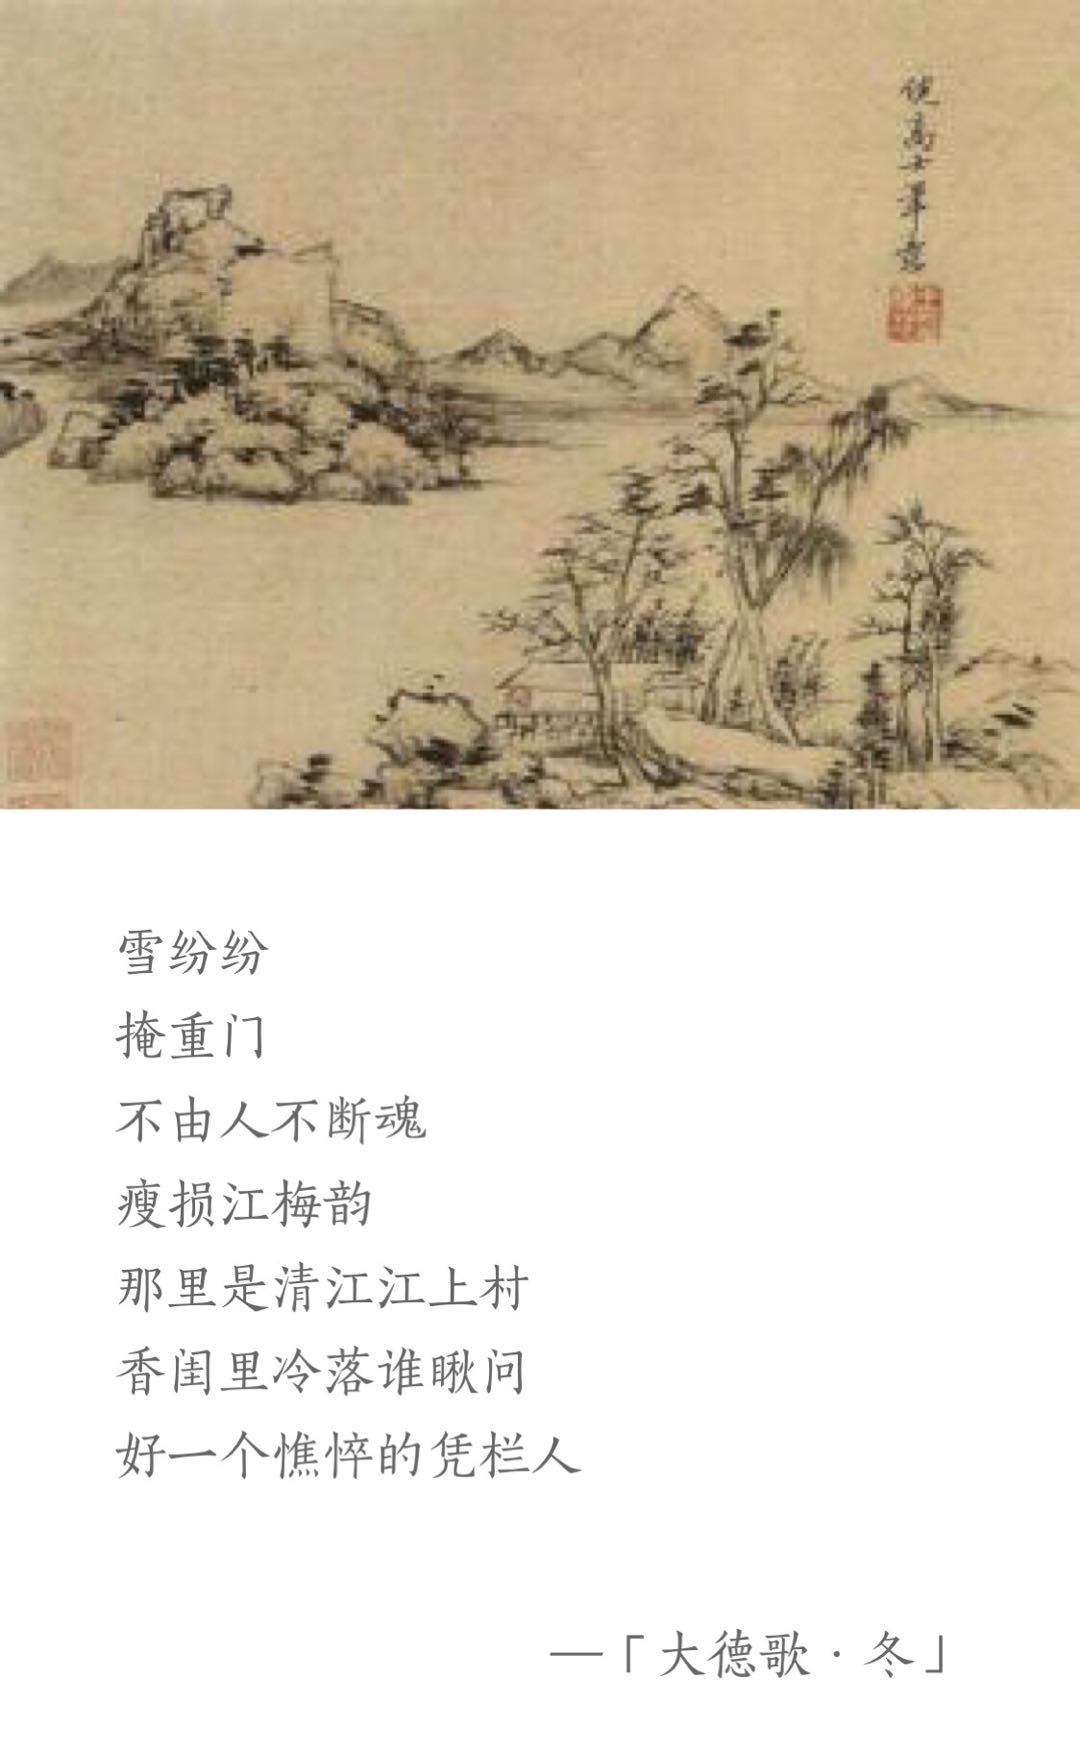 倪高士笔意
雪纷纷
掩重门
不由人不断魂
瘦损江梅韵
那里是清江江上村
香闺里冷落谁瞅问
好一个憔悴的凭栏人
—「大德歌·冬」